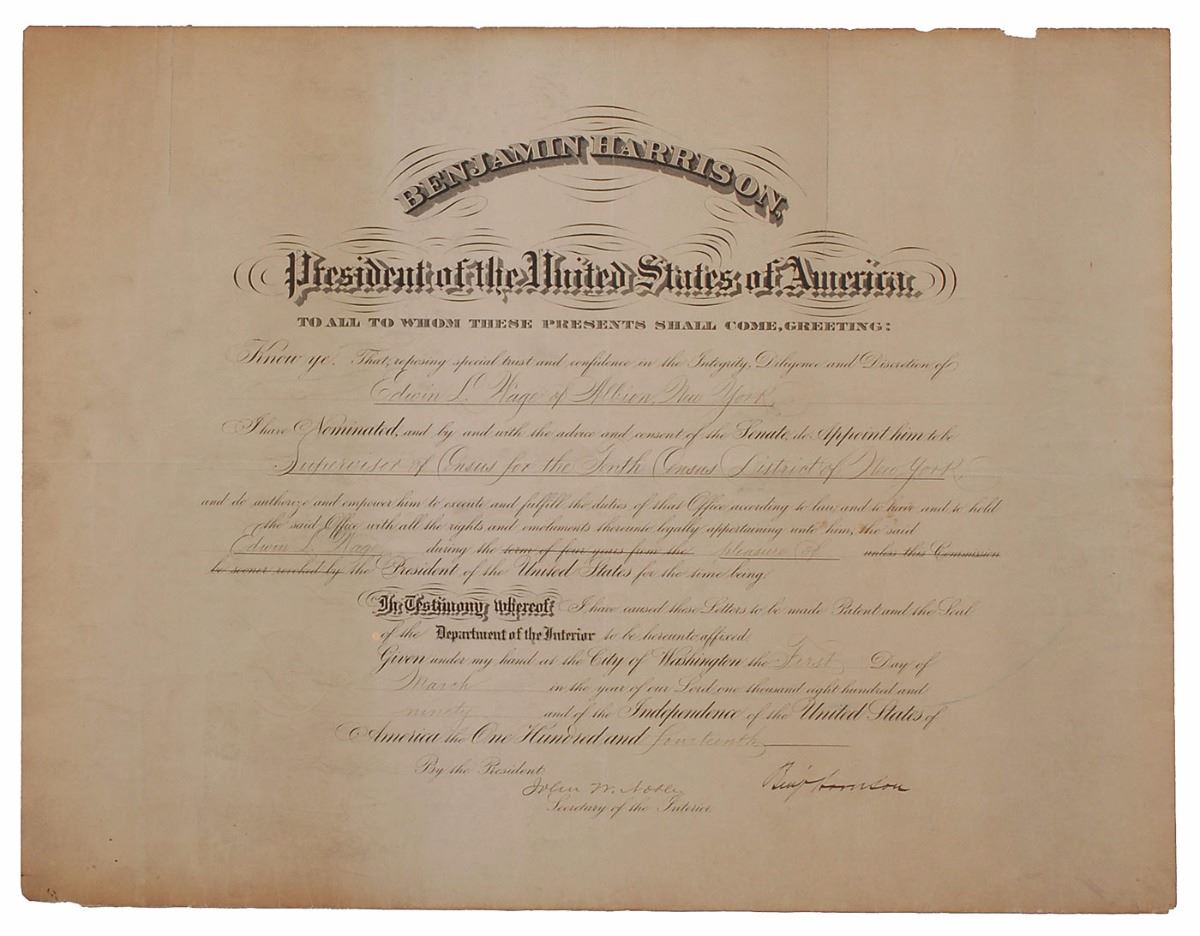 BENJAMIN HARRISON,
President of the United States of America.
TO ALL TO WHOM THESE PRESENTS SHALL COME, GREETING:
Know ye: That, reposing special trust and confidence in the Integrity, Diligence and Discretion of
Edwin L. Wage of Albion, New York,
I have Nominated, and by and with the advice and consent of the Senate, do Appoint him to be
Supervisor of Census for the Tenth Census District of New York,
and do authorize and empower him to execute and fulfill the duties of that Office according to law, and to have and to hold
the said Office, with all the rights and emoluments thereunto legally appertaining unto him, the said
Edwin L. Wage during the term of four years from the pleasure of unless this Commission
be sooner revoked by the President of the United States for the time being.
In Testimony whereof, I have caused these Letters to be made Patent and the Seal
of the Department of the Interior to be hereunto affixed.
Given under my hand at the City of Washington the First Day of
March in the year of our Lord one thousand eight hundred and
ninety and of the Independence of the United States of
America the One Hundred and fourteenth
By the President:
John W. Noble Benj Harrison
Secretary of the Interior.